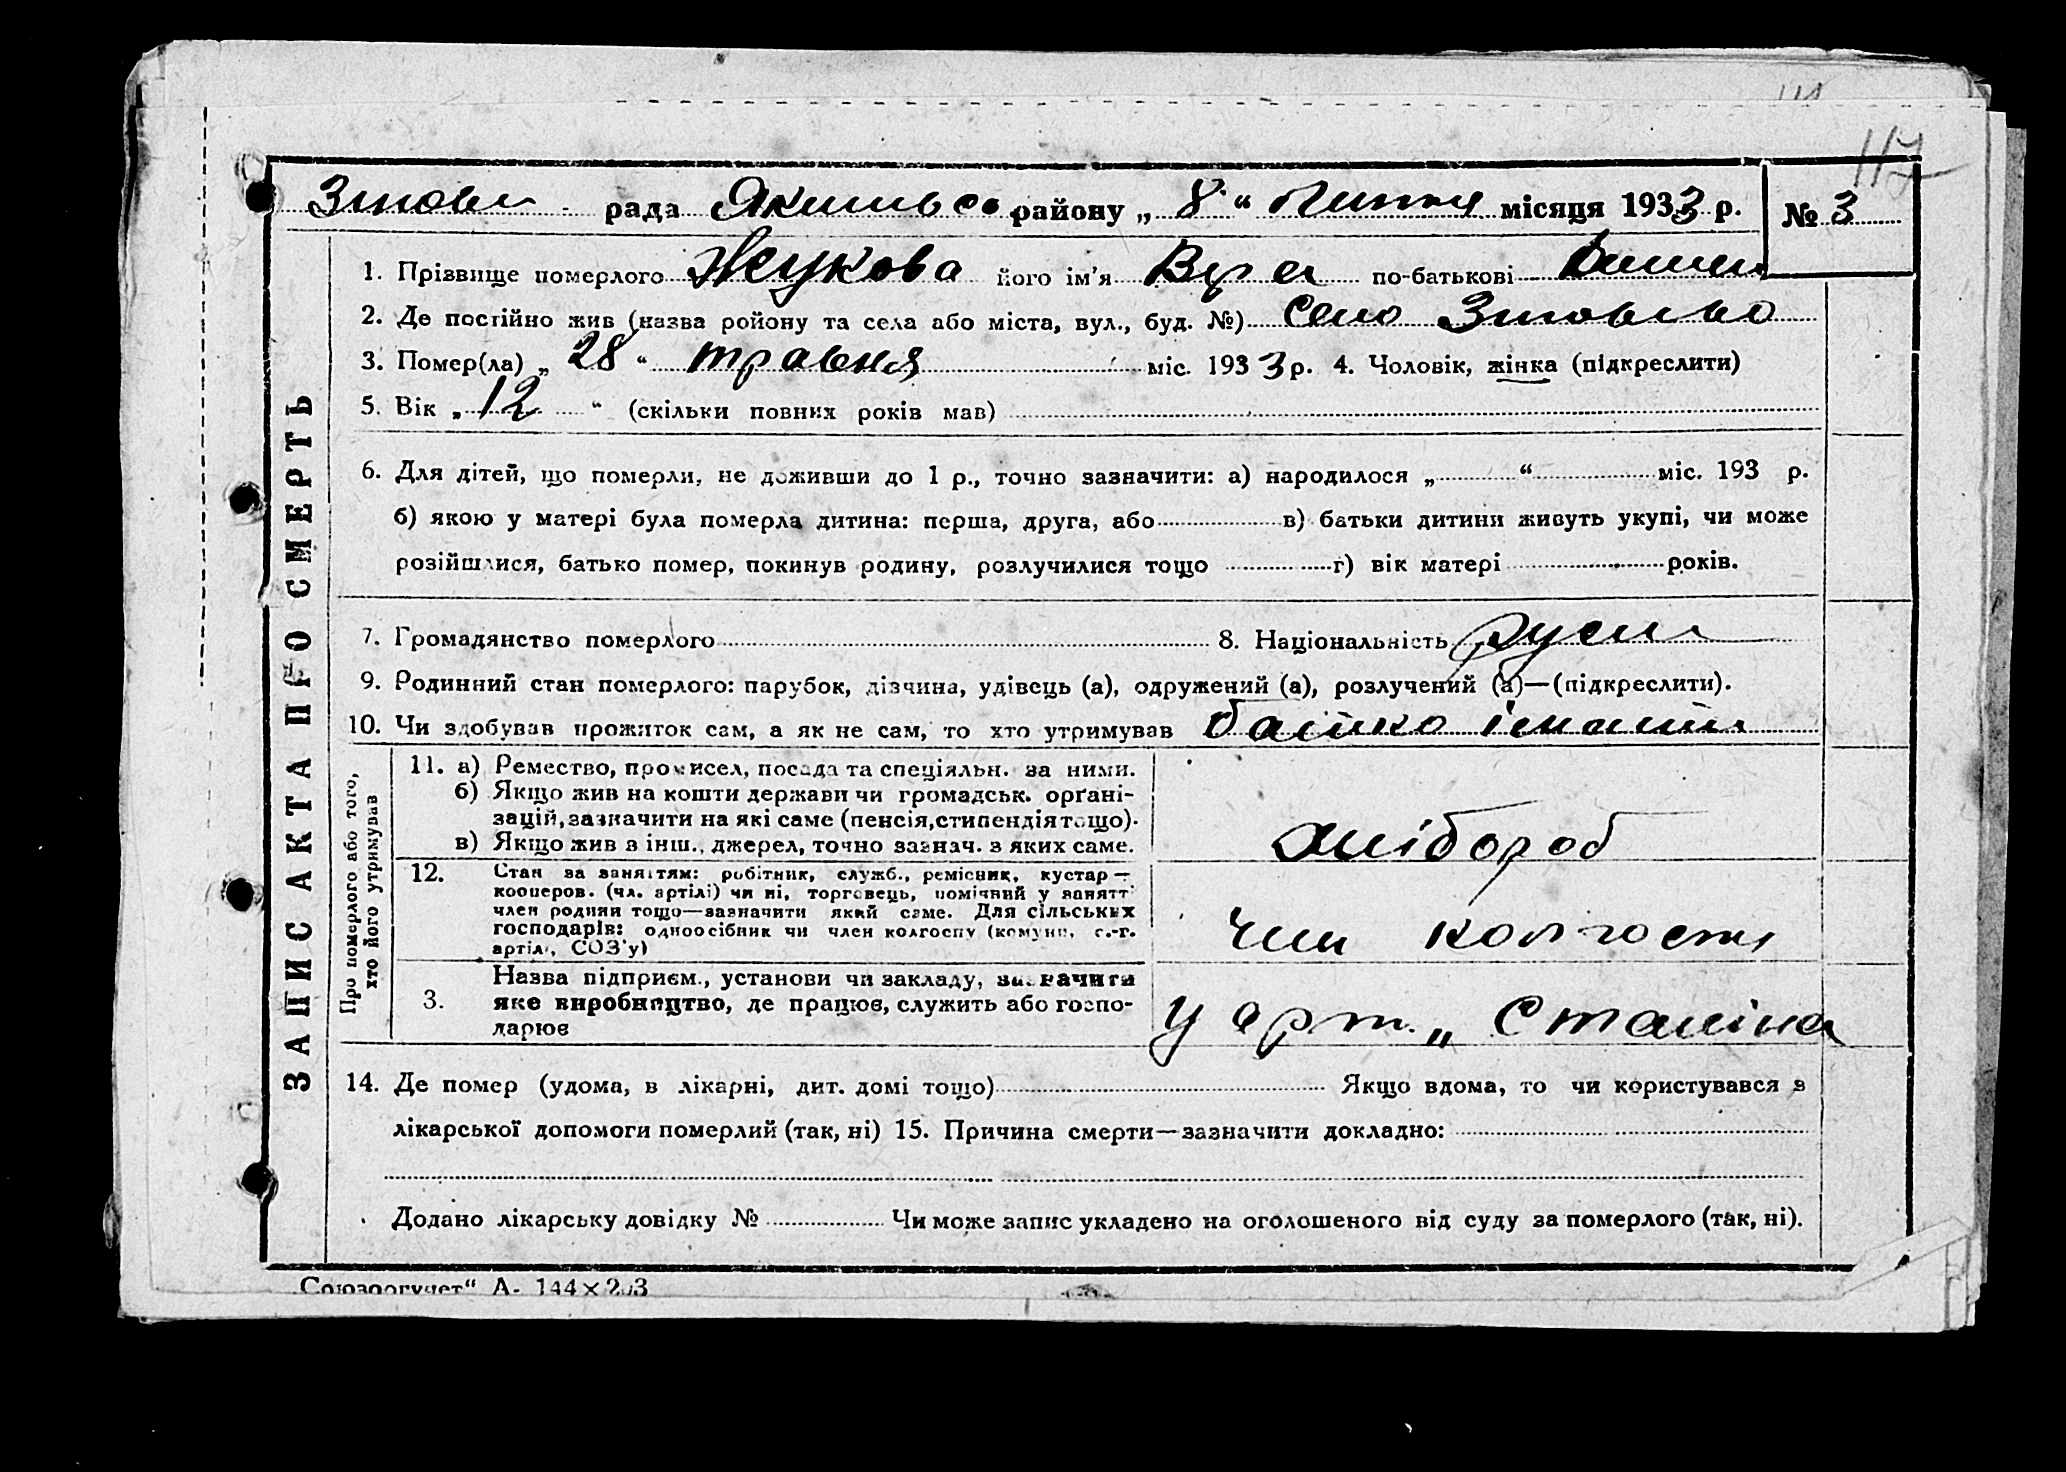 117
рада району „ 8 “ Липня місяця 1933 р. № 3
ЗАПИС АКТА ПРО СМЕРТЬ
1. Прізвище померлого Жукова його ім'я Віра по-батькові
2. Де постійно жив (назва ройону та села або міста, вул., буд. №) село
3. Помер(ла) „ 28 “ травня міс. 1933 р. 4. Чоловік, жінка (підкреслити)
5. Вік „ 12 “ (скільки повних років мав)
6. Для дітей, що померли, не доживши до 1 р., точно зазначити: а) народилося „ “ міс. 193 р.
б) якою у матері була померла дитина: перша, друга, або в) батьки дитини живуть укупі, чи може
розійшлися, батько помер, покинув родину, розлучилися тощо г) вік матері років.
7. Громадянство померлого 8. Національність
9. Родинний стан померлого: парубок, дівчина, удівець (а), одружений (а), розлучений (а)—(підкреслити).
10. Чи здобував прожиток сам, а як не сам, то хто утримував батько і мати
Про померлого або того,
хто його утримував
11. а) Ремество, промисел, посада та спеціяльн. за ними.
б) Якщо жив на кошти держави чи громадськ. орґані-
зацій, зазначити на які саме (пенсія, стипендія тощо).
в) Якщо жив з інш., джерел, точно зазнач. з яких саме.
хлібороб
12. Стан за заняттям: робітник, служб., ремісник, кустар —
кооперов. (чл. артілі) чи ні, торговець, помічний у занятт
член родини тощо—зазначити який саме. Для сільських
господарів: одноосібник чи член колгоспу (комуни, с.-г.
артілі, СОЗ'у)
член колгоспу
3. Назва підприєм., установи чи закладу, зазначити
яке виробництво, де працює, служить або госпо-
дарює
у арт. „ Сталіна
14. Де помер (удома, в лікарні, дит. домі тощо) Якщо вдома, то чи користувався з
лікарської допомоги померлий (так, ні) 15. Причина смерти—зазначити докладно:
Додано лікарську довідку № Чи може запис укладено на оголошеного від суду за померлого (так, ні).
Союзоргучет“ А- 144×203